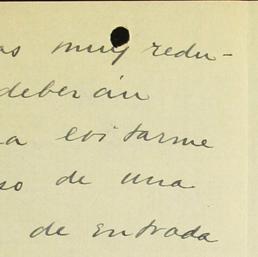 as muy redu-
deberán
a evitarme
so de una
de entrada